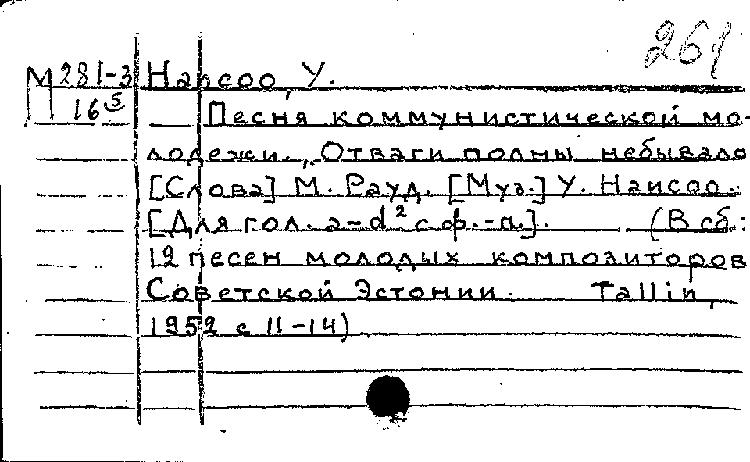 261
М281-3 Наисоо, У.
16⁵ Песня коммунистической мо-
лодежи. „Отваги полны небывало
[Слова] М. Рауд. [Муз.] У. Наисоо.
[Для гол. a-d² с ф.-п.]. (В сб.:
12 песен молодых композиторов
Советской Эстонии. Tallin,
1952 с 11-14)